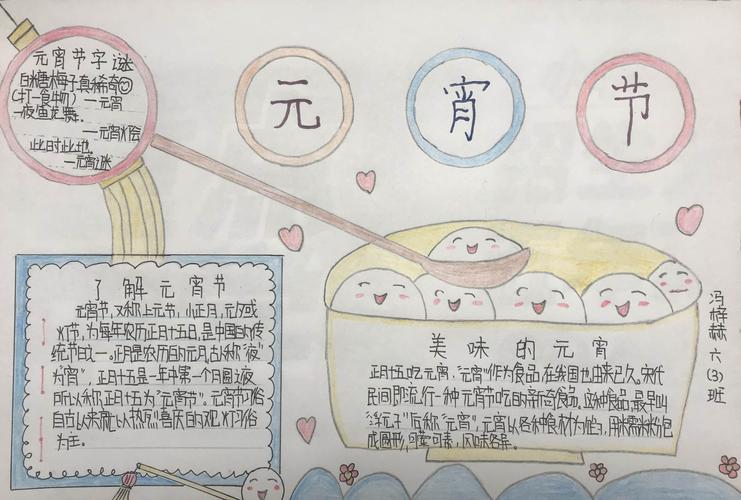 元宵节字谜
白糖梅子真稀奇
(打一食物) 一元宵
一夜鱼龙舞。
一元宵灯会
此时此地。
一元宵谜
元 宵 节
了解元宵节
元宵节,又称上元节,小正月,元夕或
灯节,为每年农历正月十五日,是中国的传
统节日之一。正月是农历的元月,古人称"夜"
为"宵",正月十五是一年中第一个月圆之夜
所以称正月十五为"元宵节"。元宵节习俗
自古以来就以热烈喜庆的观灯习俗
为主。
美味的元宵
正月十五吃元宵,"元宵"作为食品,在我国也由来已久。宋代
民间即流行一种元宵节吃的新奇食品。这种食品,最早叫
"浮元子"后称"元宵",元宵以各种食材为馅,用糯米粉包
成圆形,可荤可素,风味各异。
冯梓赫 六(3)班